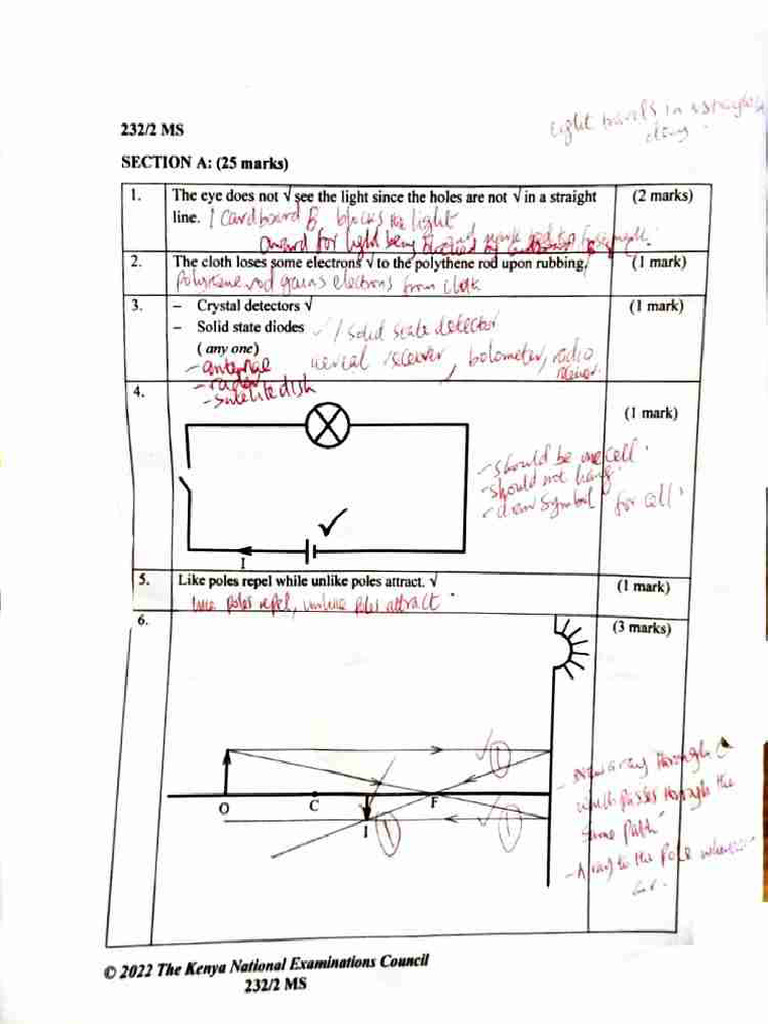 light travels in a straight
232/2 MS
SECTION A: (25 marks)
1. The eye does not √ see the light since the holes are not √ in a straight (2 marks)
line. / Cardboard B blocks the light
award for light being
2. The cloth loses some electrons √ to the polythene rod upon rubbing. (1 mark)
Polythene rod gains electrons from cloth
3. – Crystal detectors √ (1 mark)
– Solid state diodes ✓ / solid state detector
( any one)
receiver, bolometer, radio
- radar
- satelite dish
4. (1 mark)
- should be one cell.
- should not hang.
- draw symbol for cell.
✓
I
5. Like poles repel while unlike poles attract. √ (1 mark)
like poles repel, unlike poles attract.
6. (3 marks)
✓ 1
O C F
I 1 ✓ 1
- ray through C
which passes through the
same path
- A ray to the pole
© 2022 The Kenya National Examinations Council
232/2 MS